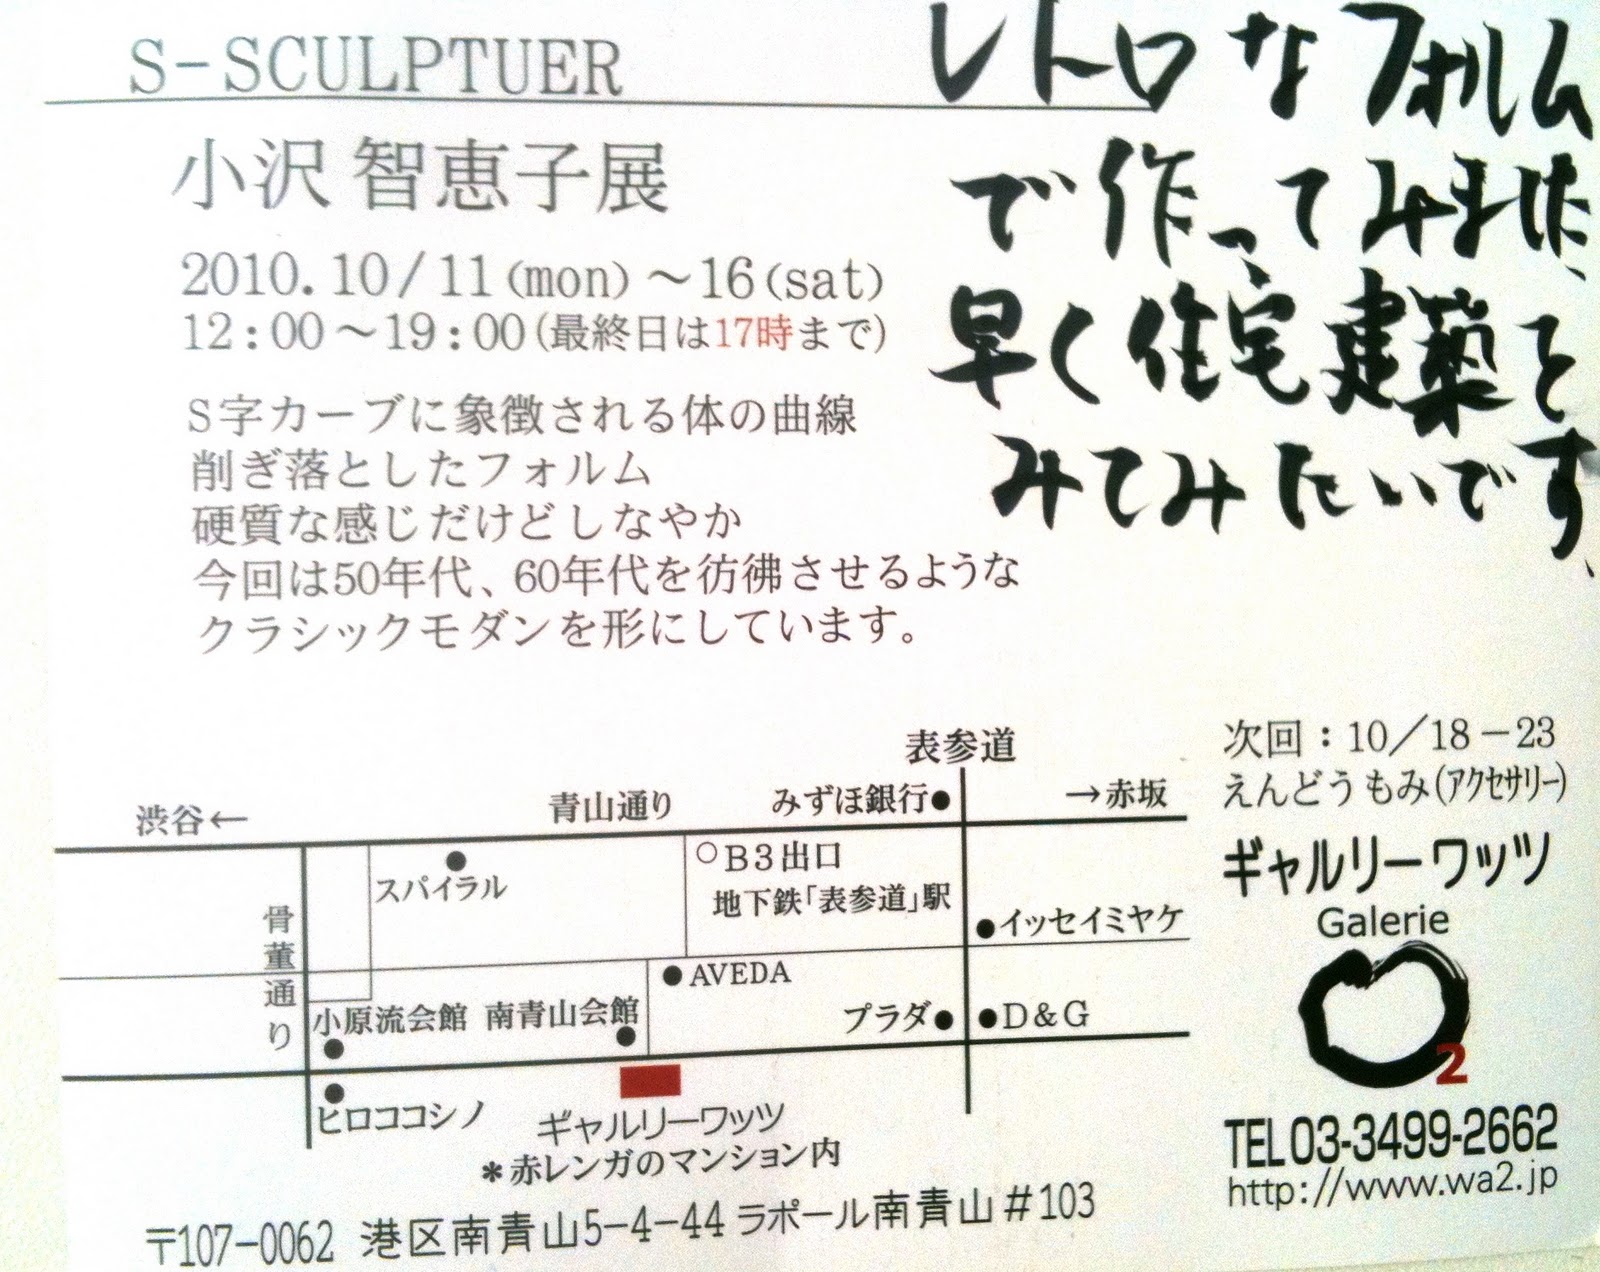 S-SCULPTUER
小沢 智恵子展
2010.10/11(mon)～16(sat)
12:00～19:00(最終日は17時まで)
S字カーブに象徴される体の曲線
削ぎ落としたフォルム
硬質な感じだけどしなやか
今回は50年代、60年代を彷彿させるような
クラシックモダンを形にしています。
レトロなフォルム
で作ってみました、
早く住宅建築を
みてみたいです、
表参道
渋谷←
青山通り
みずほ銀行
→赤坂
スパイラル
B3出口
地下鉄「表参道」駅
骨董通り
イッセイミヤケ
AVEDA
小原流会館
南青山会館
プラダ
D&G
ヒロココシノ
ギャルリーワッツ
*赤レンガのマンション内
〒107-0062 港区南青山5-4-44 ラポール南青山#103
次回：10／18－23
えんどうもみ(アクセサリー)
ギャルリーワッツ
Galerie
2
TEL03-3499-2662
http://www.wa2.jp